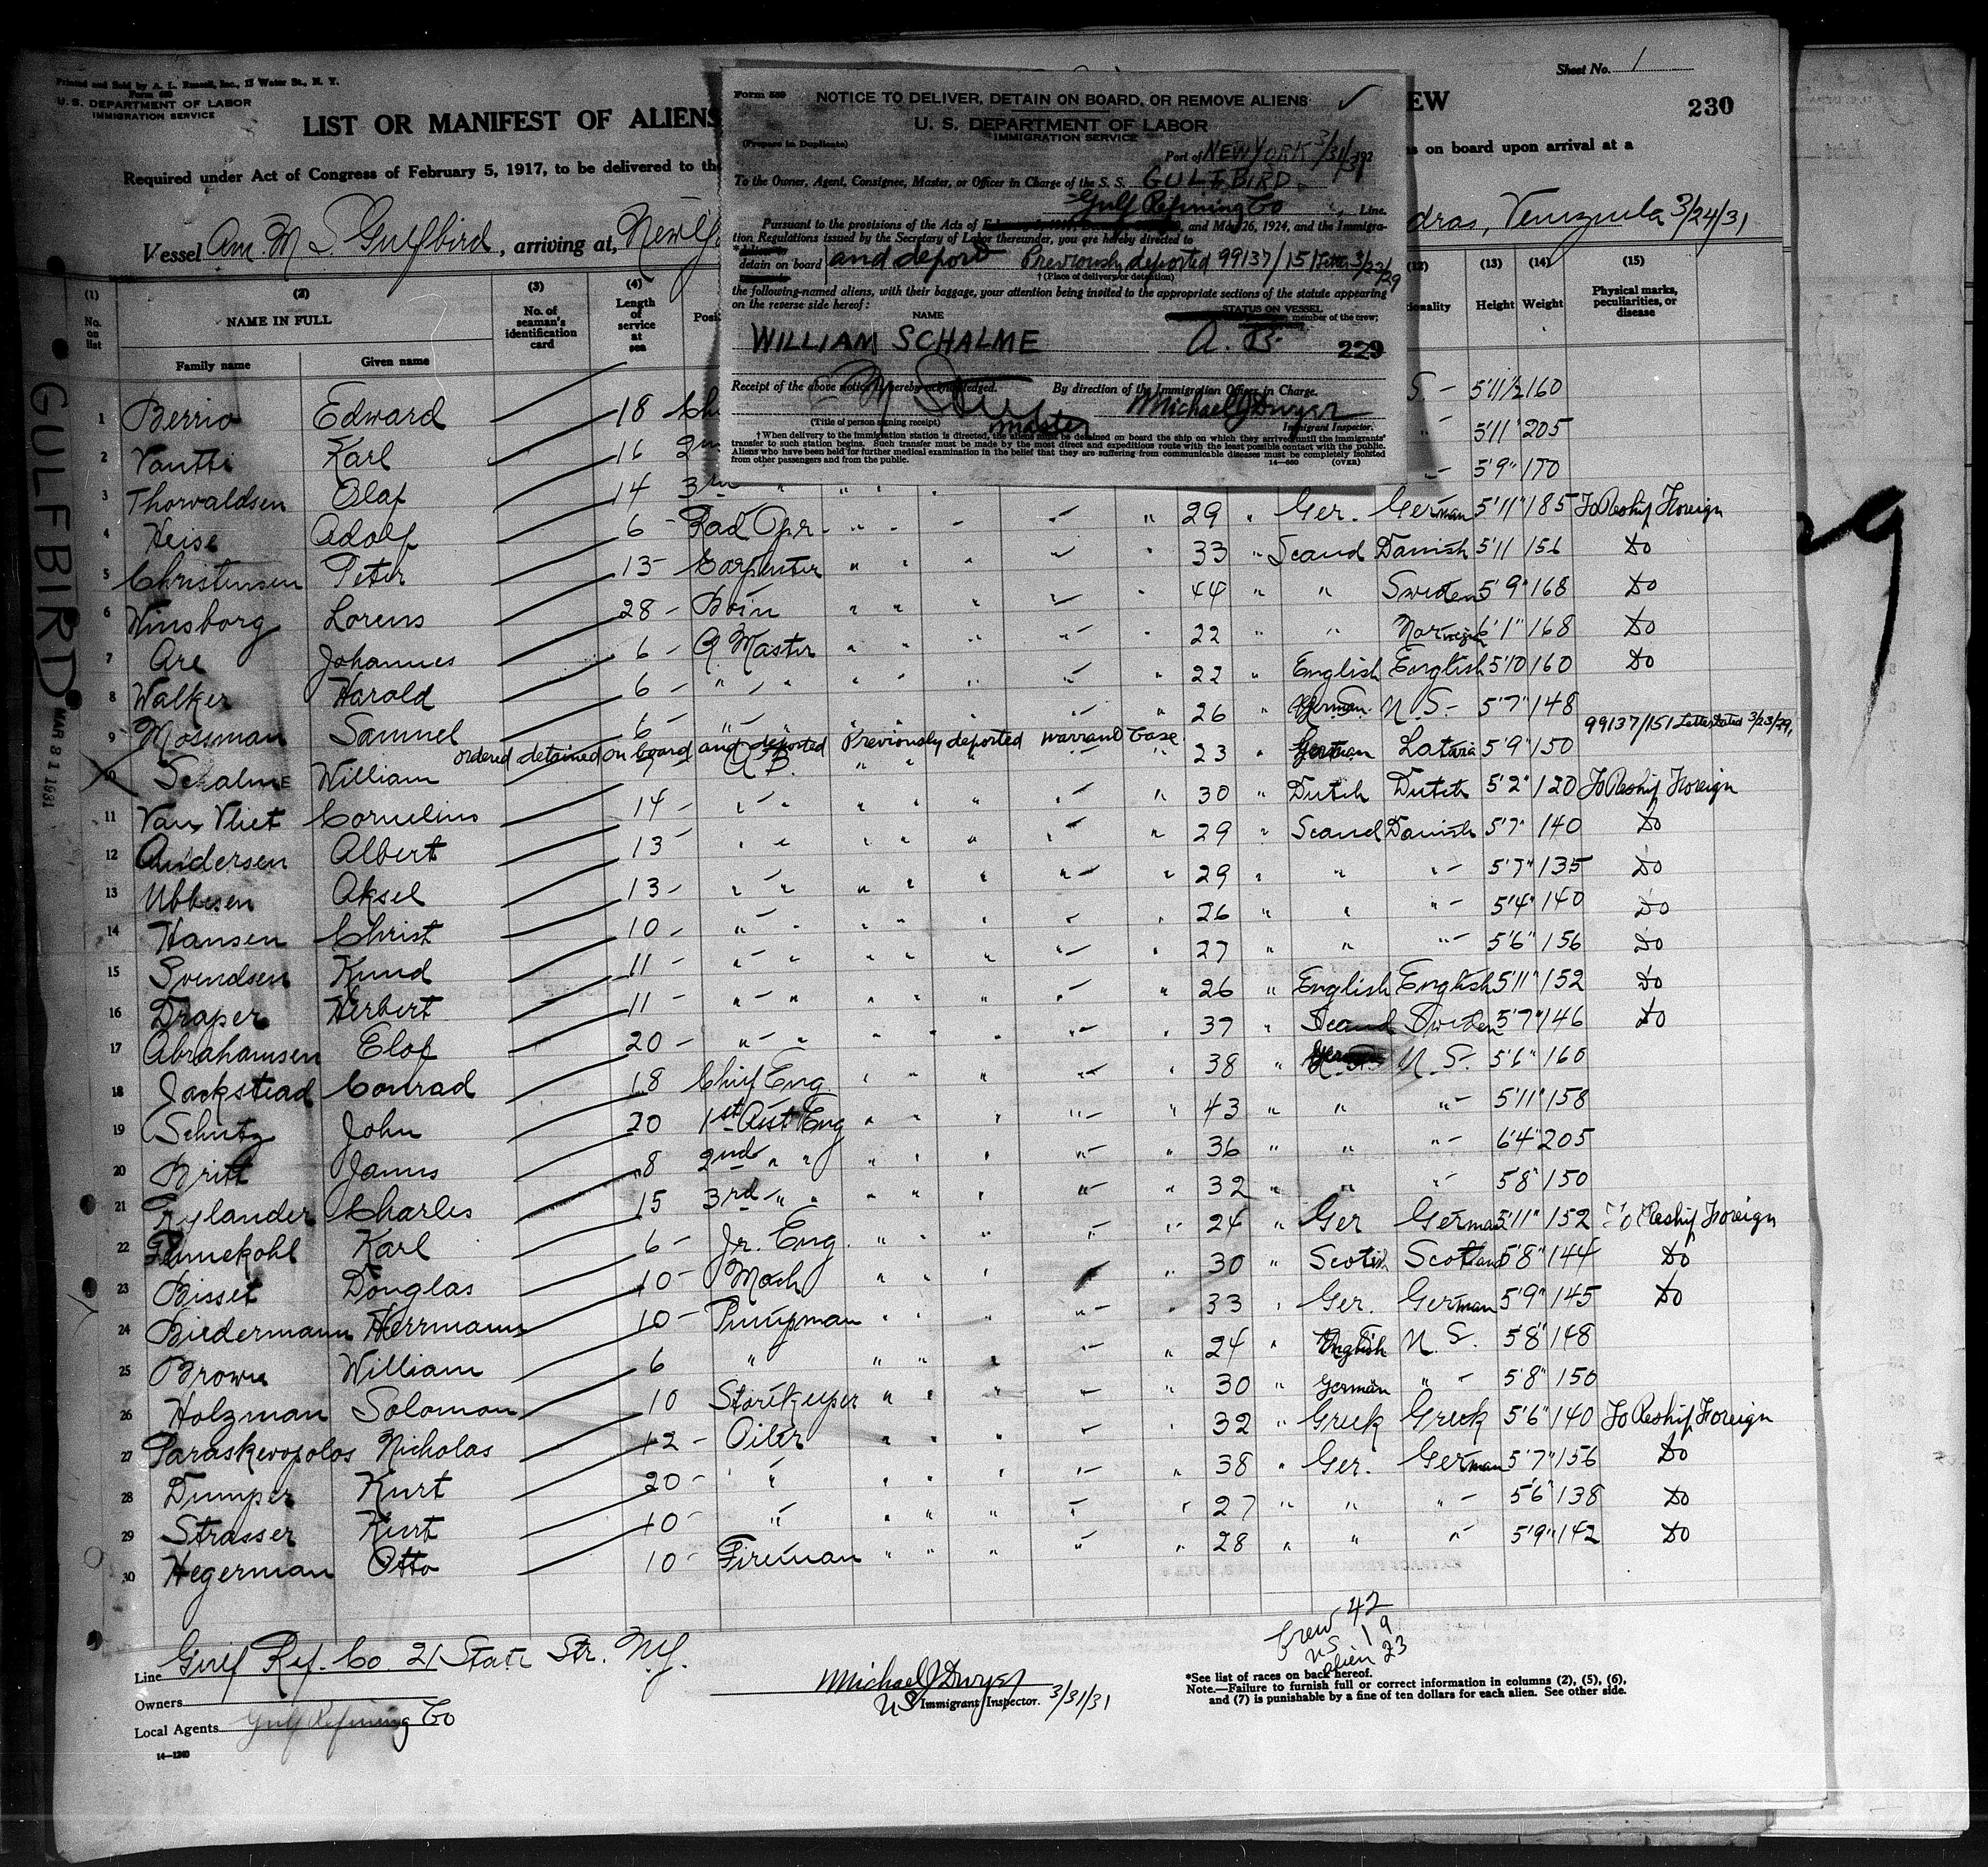 Printed and Sold by A. L. Russell, Inc., 17 Water St., N. Y.
Form 689
U. S. DEPARTMENT OF LABOR
IMMIGRATION SERVICE
Sheet No. 1
230
LIST OR MANIFEST OF ALIENS
EW
Required under Act of Congress of February 5, 1917, to be delivered to the
s on board upon arrival at a
Vessel Am. M S Gulfbird, arriving at, New Yo
dras, Venezuela 3/24/31
Form 589
NOTICE TO DELIVER, DETAIN ON BOARD, OR REMOVE ALIENS
U. S. DEPARTMENT OF LABOR
IMMIGRATION SERVICE
(Prepare in Duplicate)
Port of NEW YORK 3/31/31 192
To the Owner, Agent, Consignee, Master, or Officer in Charge of the S. S. GULFBIRD
Gulf Refining Co, Line.
Pursuant to the provisions of the Acts of and May 26, 1924, and the Immigra-
tion Regulations issued by the Secretary of Labor thereunder, you are hereby directed to
detain on board and deport Previously deported 99137/151 Letter 3/23/29
† (Place of delivery or detention)
the following-named aliens, with their baggage, your attention being invited to the appropriate sections of the statute appearing
on the reverse side hereof:
NAME STATUS ON VESSEL
member of the crew;
WILLIAM SCHALME A. B. 229
Receipt of the above notice is hereby acknowledged. By direction of the Immigration Officer in Charge.
Michael J Dwyer
Master
(Title of person signing receipt) Immigrant Inspector.
† When delivery to the immigration station is directed, the aliens must be detained on board the ship on which they arrived until the immigrants'
transfer to such station begins. Such transfer must be made by the most direct and expeditious route with the least possible contact with the public.
Aliens who have been held for further medical examination in the belief that they are suffering from communicable diseases must be completely isolated
from other passengers and from the public.
14—680 (OVER)
(1) (2) (3) (4) (12) (13) (14) (15)
No. on list NAME IN FULL No. of seaman's identification card Length of service at sea Posi ionality Height Weight Physical marks, peculiarities, or disease
Family name Given name
1 Berrio Edward 18 Chi S - 5'11½ 160
2 Vautti Karl 16 2n " - 5'11" 205
3 Thorwaldsen Olaf 14 3rd " " " " - 5'9" 170
4 Heise Adolf 6 - Rad Opr. " " " " " 29 " Ger. German 5'11" 185 To Reship Foreign
5 Christensen Peter 13 - Carpenter " " " " " 33 " Scand Danish 5'11 156 Do
6 Winsborg Lorens 28 - Bo'in " " " " " 44 " " Sweden 5'9" 168 Do
7 Are Johannes 6 - Q Master " " " " " 22 " " Norwegia 6'1" 168 Do
8 Walker Harold 6 - " " " " " " " 22 " English English 5'10 160 Do
9 Mossman Samuel 6 - " " " " " " " 26 " German U. S. - 5'7" 148
ordered detained on board and deported Previously deported warrant Case 99137/151 Letter dated 3/23/29,
10 Schalme William 7 - A B. " " 23 " German Latvia 5'9" 150
11 Van Vliet Cornelius 14 - " " " " " " " 30 " Dutch Dutch 5'2" 120 To Reship Foreign
12 Andersen Albert 13 " " " " " " " 29 " Scand Danish 5'7" 140 Do
13 Ubbesen Aksel 13 - " " " " " " " 29 " " " - 5'7" 135 Do
14 Hansen Christ 10 - " " " " " " " 26 " " " - 5'4" 140 Do
15 Svendsen Knud 11 - " " " " " " " 27 " " " - 5'6" 156 Do
16 Draper Herbert 11 - " " " " " " " 26 " English English 5'11" 152 Do
17 Abrahamsen Elof 20 - " " " " " " " 37 " Scand Sweden 5'7" 146 Do
18 Jackstead Conrad 18 Chief Eng. " " " " " 38 " U. S. - 5'6" 160
19 Schutz John 20 1st Asst Eng " " " " " 43 " " " - 5'11" 158
20 Britt James 8 2nd " " " " " " " 36 " " " - 6'4" 205
21 Rylander Charles 15 3rd " " " " " " " 32 " " " - 5'8 150
22 Karl 6 - Jr. Eng. " " " " " 24 " Ger German 5'11" 152 To Reship Foreign
23 Bisset Douglas 10 - Mach " " " " 30 " Scotish Scotland 5'8" 144 Do
24 Biedermann Herrmann 10 - Pumpman " " " " " 33 " Ger. German 5'9" 145 Do
25 Brown William 6 " " " " " " 24 " English U. S. 5'8" 148
26 Holzman Solomon 10 Storekeeper " " " " " 30 " German " - 5'8" 150
27 Paraskevopolos Nicholas 12 - Oiler " " " " " 32 " Greek Greek 5'6" 140 To Reship Foreign
28 Dumper Kurt 20 - " " " " " " 38 " Ger. German 5'7" 156 Do
29 Strasser Kurt 10 - " " " " " " 27 " " " - 5'6" 138 Do
30 Hegerman Otto 10 - Fireman " " " " " 28 " " " - 5'9" 142 Do
GULFBIRD
MAR 31 1931
Crew 42
US 19
Alien 23
Line Gulf Ref. Co. 21 State Str. N.Y.
Owners
Local Agents Gulf Refining Co
14—1240
Michael J Dwyer
US Immigrant Inspector. 3/31/31
*See list of races on back hereof.
Note.—Failure to furnish full or correct information in columns (2), (5), (6),
and (7) is punishable by a fine of ten dollars for each alien. See other side.